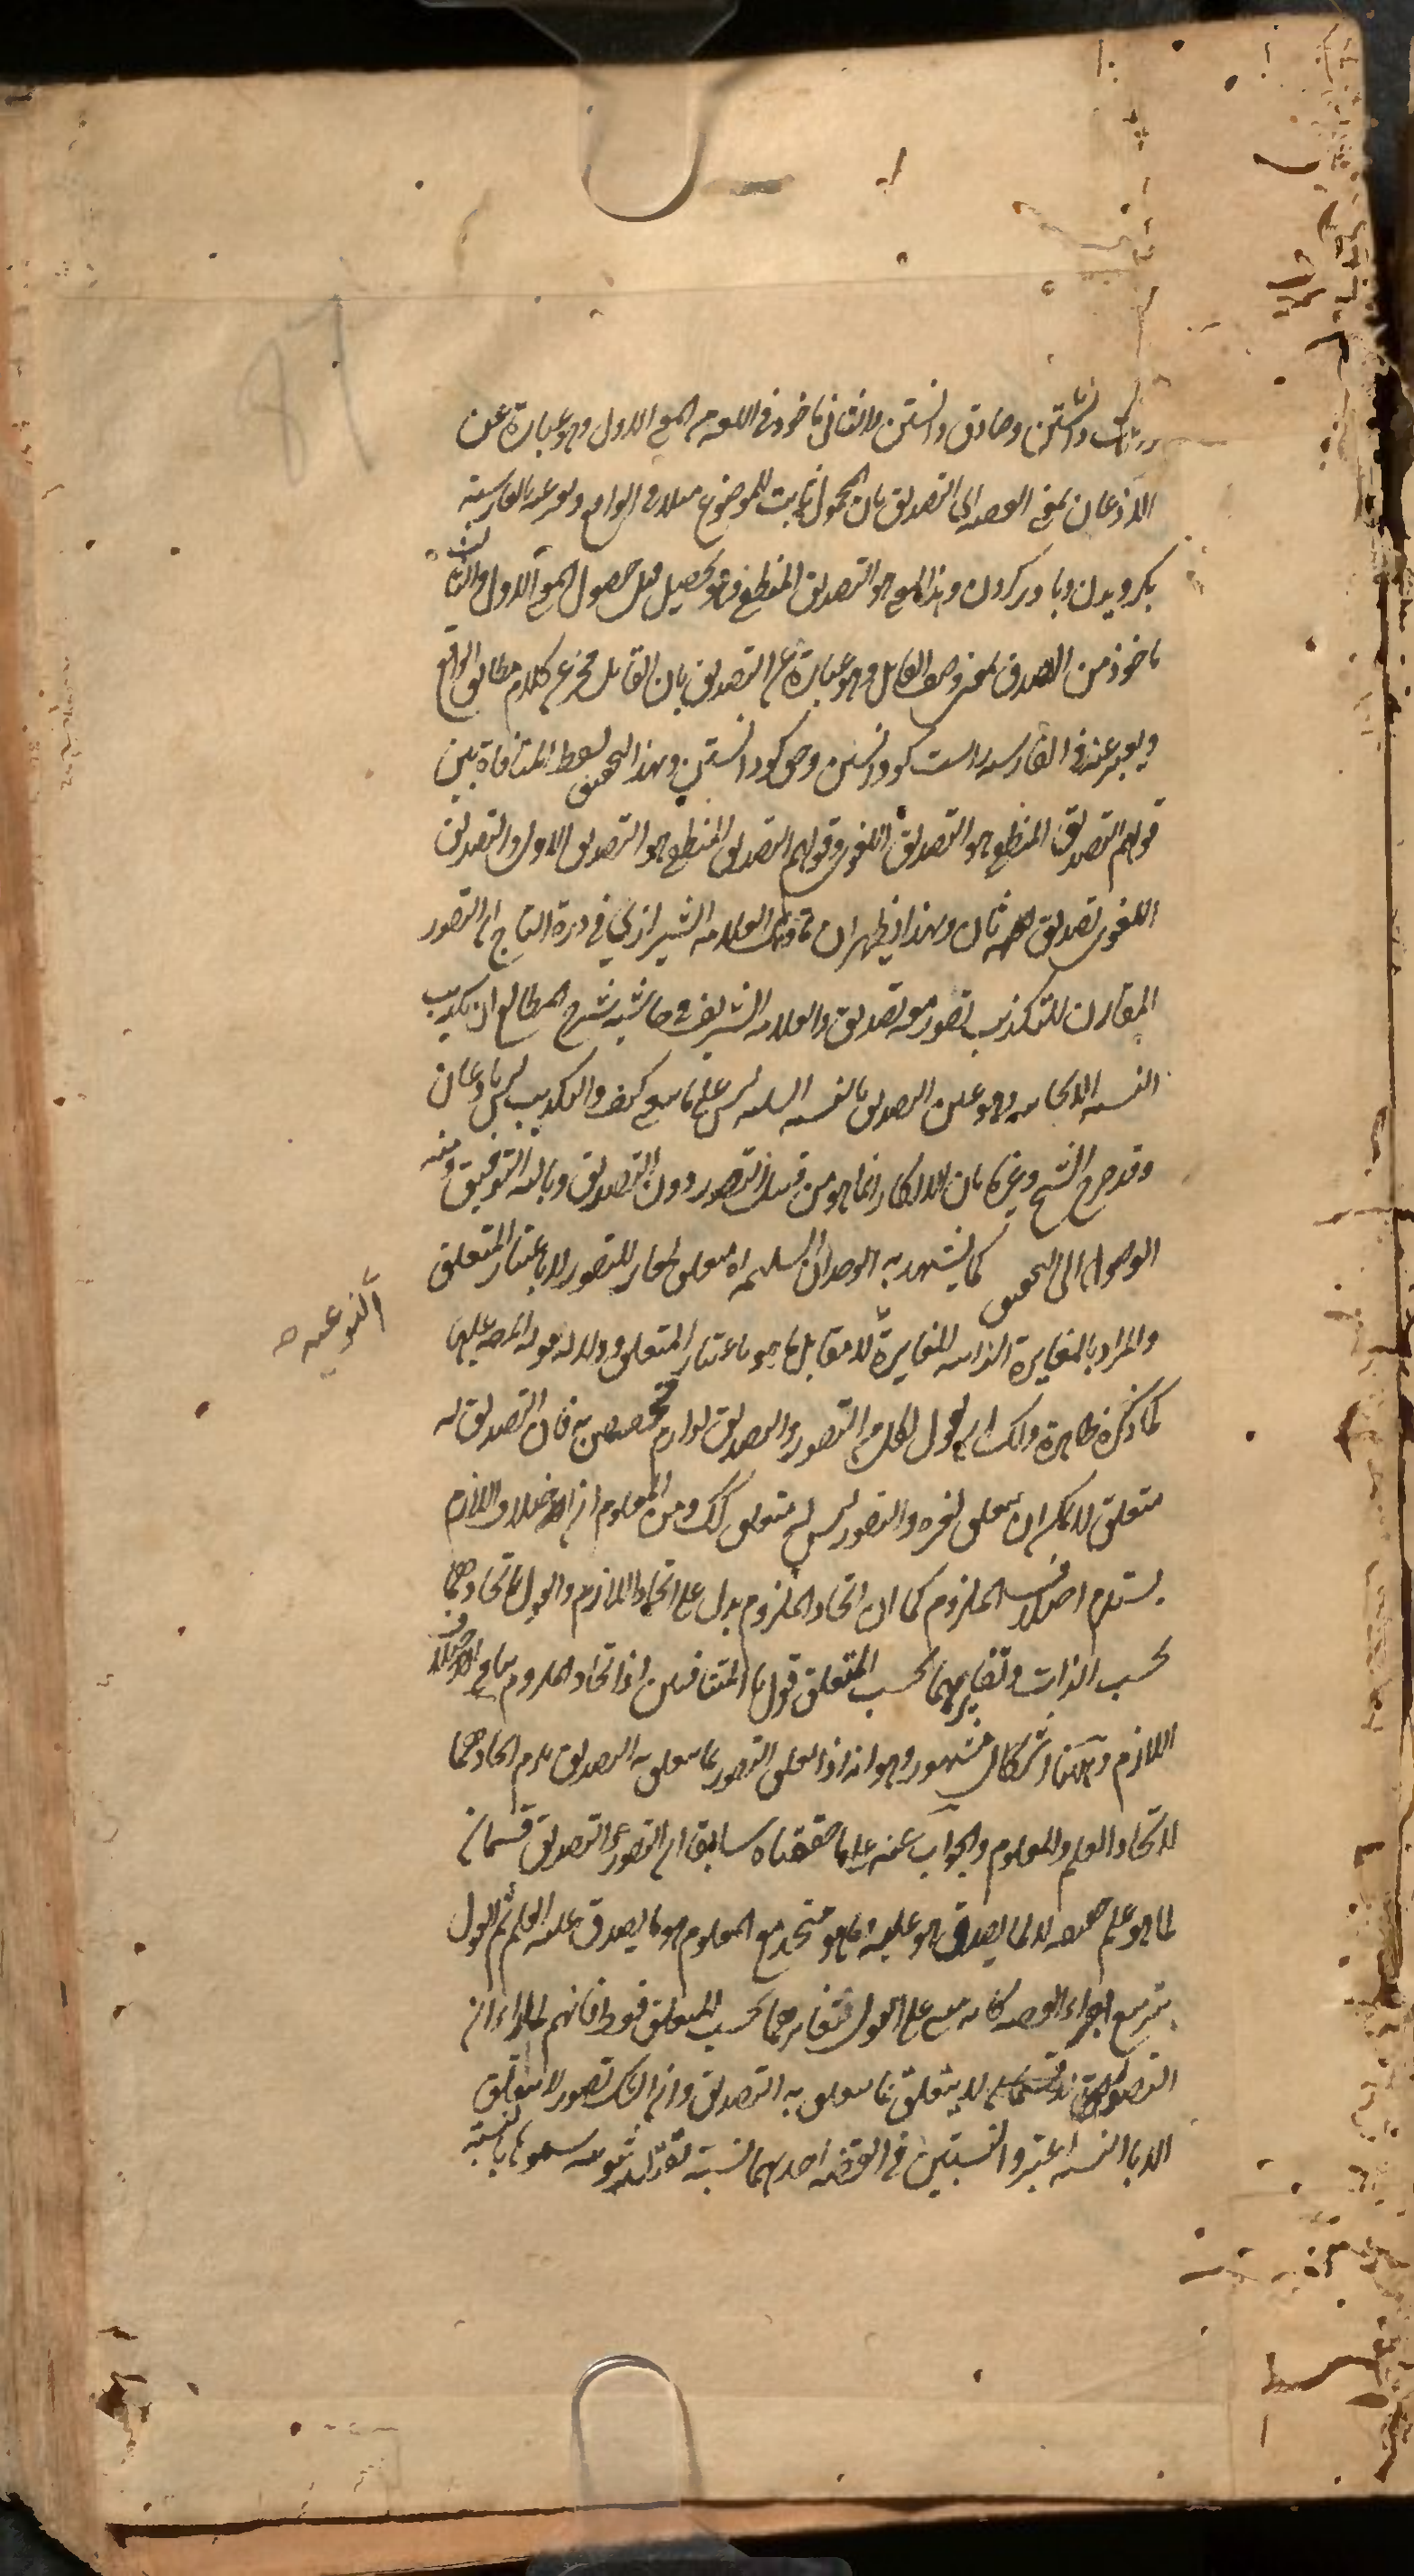 راست دانستن وصادق دانستن والثانى ماخوذ فى اللغه من المعنى الاول وهو عبارة عن
الاذعان بمعنى القضيه اى التصديق بان المحمول ثابت للموضوع مثلا فى الواقع ويعبر عنه بالفارسية
بكرويدن وباور كردن وهذا المعنى هو التصديق المنطقى وهو يحصل قبل حصول المعنى الاول والثالث
ماخوذ من الصدق بمعنى وصف القايل وهو عبارة عن التصديق بان القايل مخبر عن كلام مطابق للواقع
ويعبر عنه فى الفارسيه راست كو دانستن وحق كو دانستن وبهذا التحقيق يسقط المنافاة بين
قولهم التصديق المنطقى هو التصديق اللغوى وقولهم التصديق المنطقى هو التصديق الاول والتصديق
اللغوى تصديق ثان وبهذا يظهر ان ما قال العلامه الشيرازي في درة التاج ان التصور
المقارن للتكذيب تصور معه تصديق والعلامه الشريف فى حاشية شرح المطالع ان تكذيب
النسبه الايجابيه وهو عين التصديق بالنسبه السلبيه ليس على ما ينبغى كيف والتكذيب ليس باذعان
وقد صرح الشيخ وغيره بان الانكار انما هو من قبيل التصور دون التصديق وبالله التوفيق ومنه
الوصول الى التحقيق كما يشهد به الوجدان السليم له متعلق مغاير للتصور لا باعتبار المتعلق
والمراد بالمغايرة الذاتيه المغايرة لا مقابل ما هو باعتبار المتعلق ودلالة قوله المرضيه عليها
النوعيه ص
كما ذكره ظاهرة ولك ان تقول لكل من التصور والتصديق لوازم مختصه به فان التصديق له
متعلق لا يمكن ان يتعلق بغيره والتصور ليس له متعلق كك ومن المعلوم ان اختلاف اللازم
يستلزم اختلاف الملزوم كما ان اتحاد الملزوم يدل على اتحاد اللازم والقول باتحادهما
بحسب الذات وتغايرهما بحسب المتعلق قول بالمتنافيين اذ اتحاد الملزوم ينافى اختلاف
اللازم وههنا اشكال مشهور وهو انه اذا تعلق التصور بما يتعلق به التصديق يلزم اتحادهما
لاتحاد العلم والمعلوم والجواب عنه على ما حققناه سابقا ان التصور والتصديق قسمان
لما هو علم حقيقه لا لما يصدق هو عليه وما هو متحد مع المعلوم هو ما يصدق عليه العلم ثم القول
بتربيع اجزاء القضيه كانه مبنى على القول بتغايرهما بحسب المتعلق فقط فانهم لما راوا ان
التصور لا يتعلق بما يتعلق به التصديق وان الشك تصور لا يتعلق
الا بالنسبه اعتبروا النسبتين فى القضيه احديهما نسبة تقييديه ثبوتيه يسمونها بالنسبة